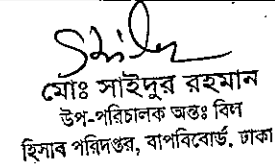 মোঃ সাইদুর রহমান
উপ-পরিচালক অতঃ বিল
হিসাব পরিদপ্তর, বাপবিবোর্ড, ঢাকা